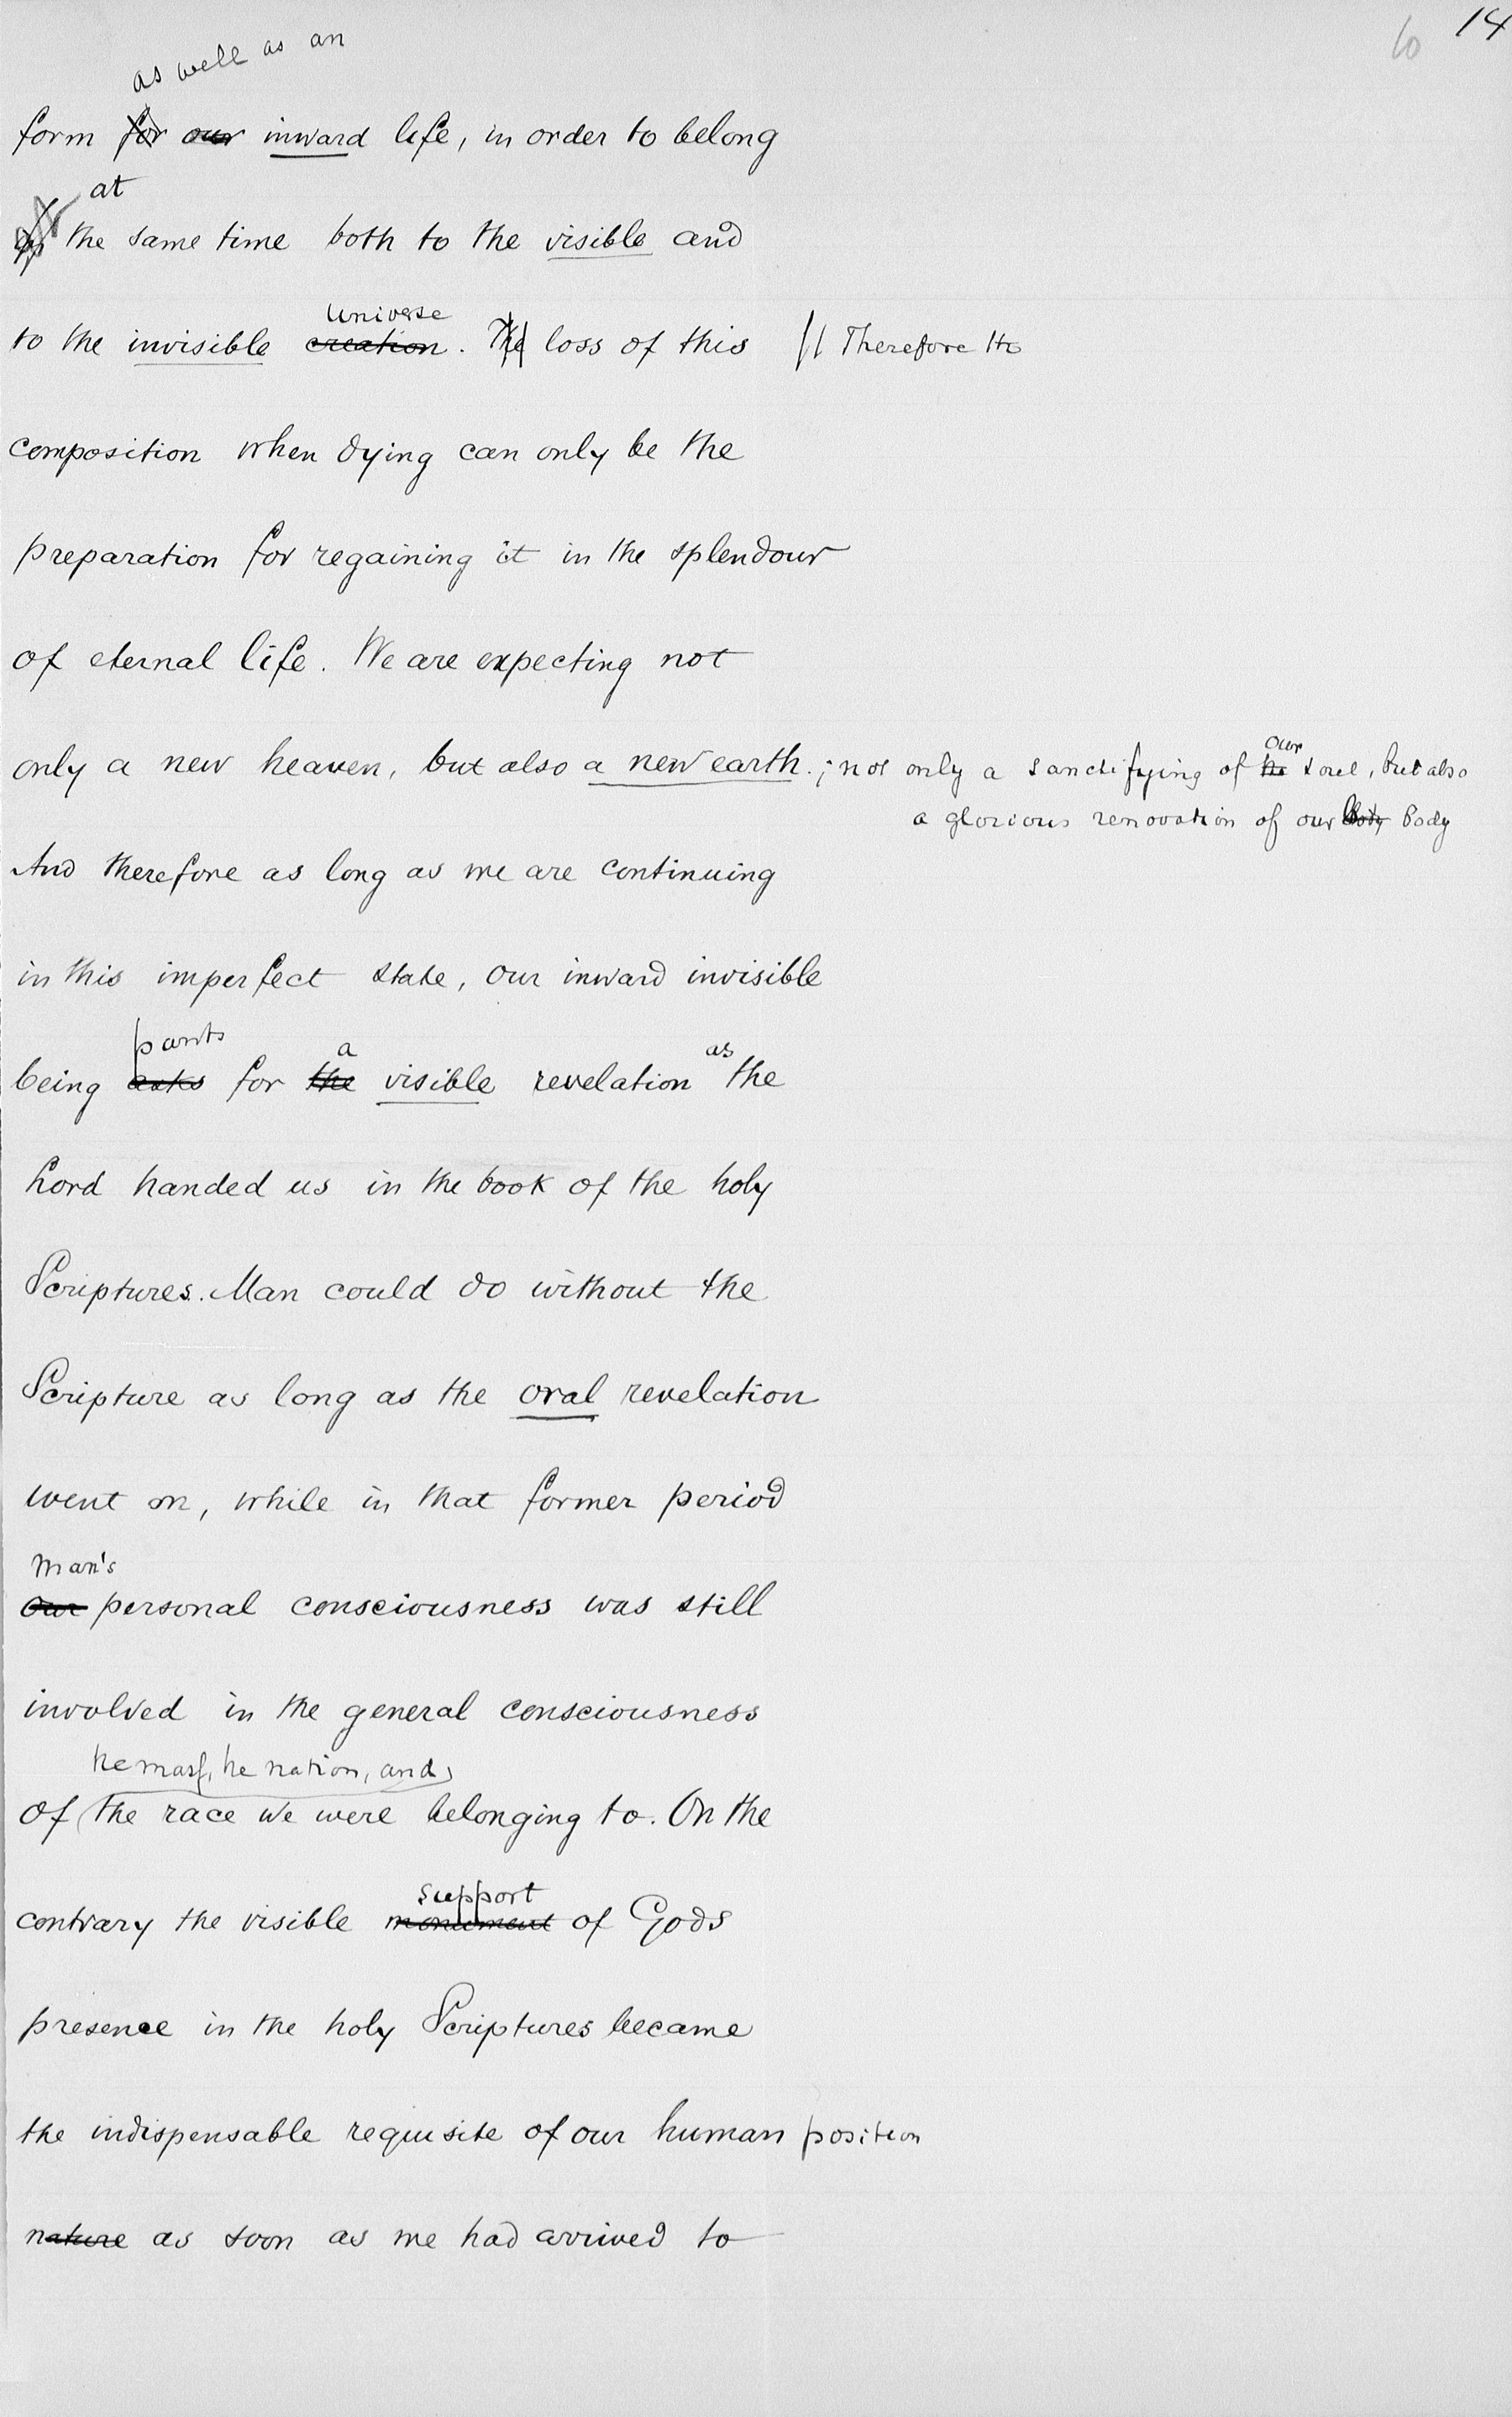 14
as well as an
form for our inward life, in order to belong
at
the same time both to the visible and
universe
to the invisible creation. The loss of this || Therefore the
composition when dying can only be the
preparation for regaining it in the splendour
of eternal life. We are expecting not
our
only a new heaven, but also a new earth.; not only a sanctifying of the soul, but also
a glorious renovation of our body body
And therefore as long as we are continuing
in this imperfect state, our inward invisible
pants a as
being asks for the visible revelation the
Lord handed us in the book of the holy
Scriptures. Man could do without the
Scripture as long as the oral revelation
went on, while in that former period
man's
our personal consciousness was still
involved in the general consciousness
the mass, the nation, and
of the race we were belonging to. On the
support
contrary the visible monument of Gods
presence in the holy Scriptures became
the indispensable requisite of our human position
nature as soon as we had arrived to